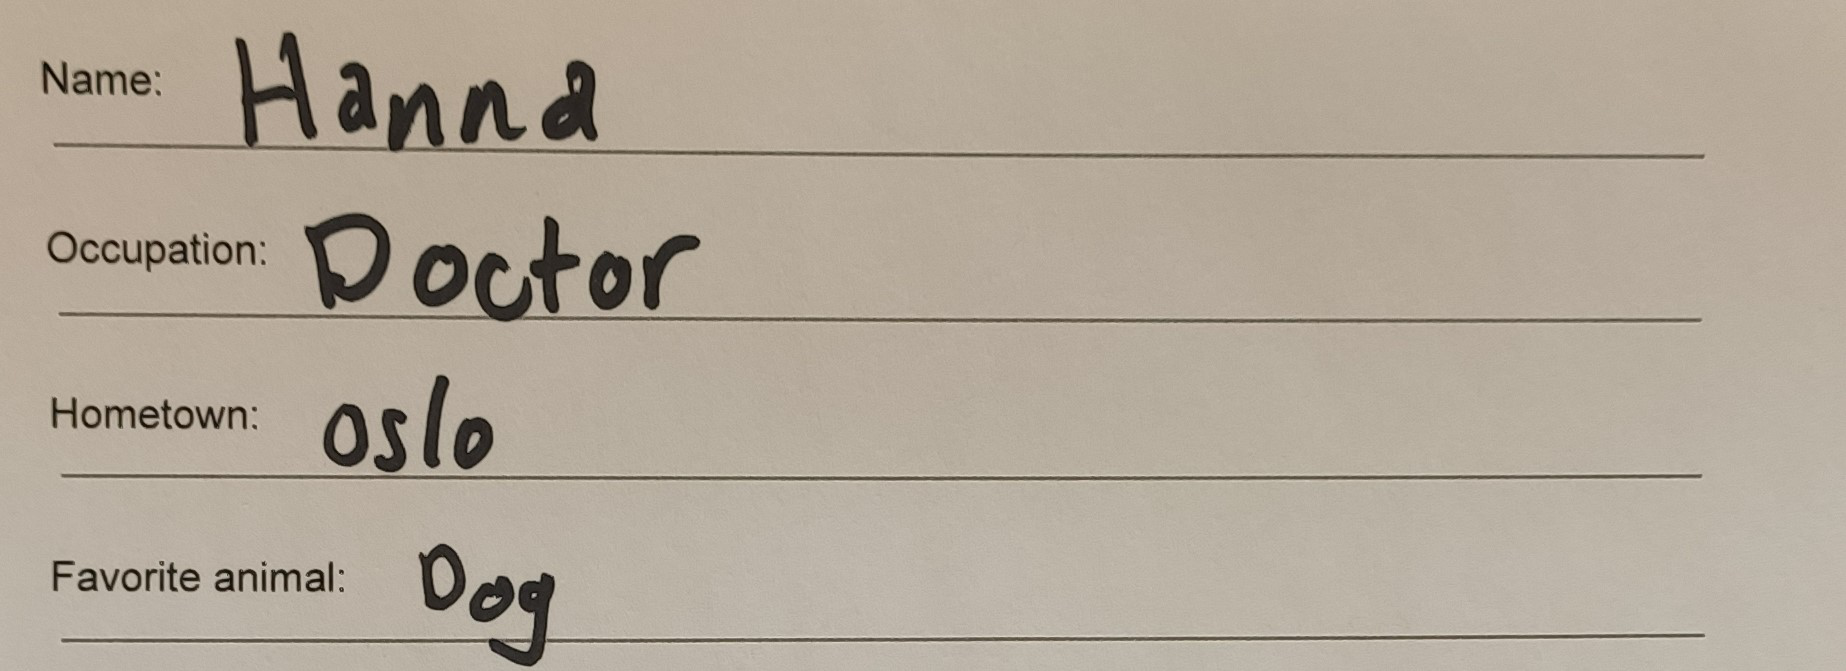 Name: Hanna
Occupation: Doctor
Hometown: oslo
Favorite animal: Dog